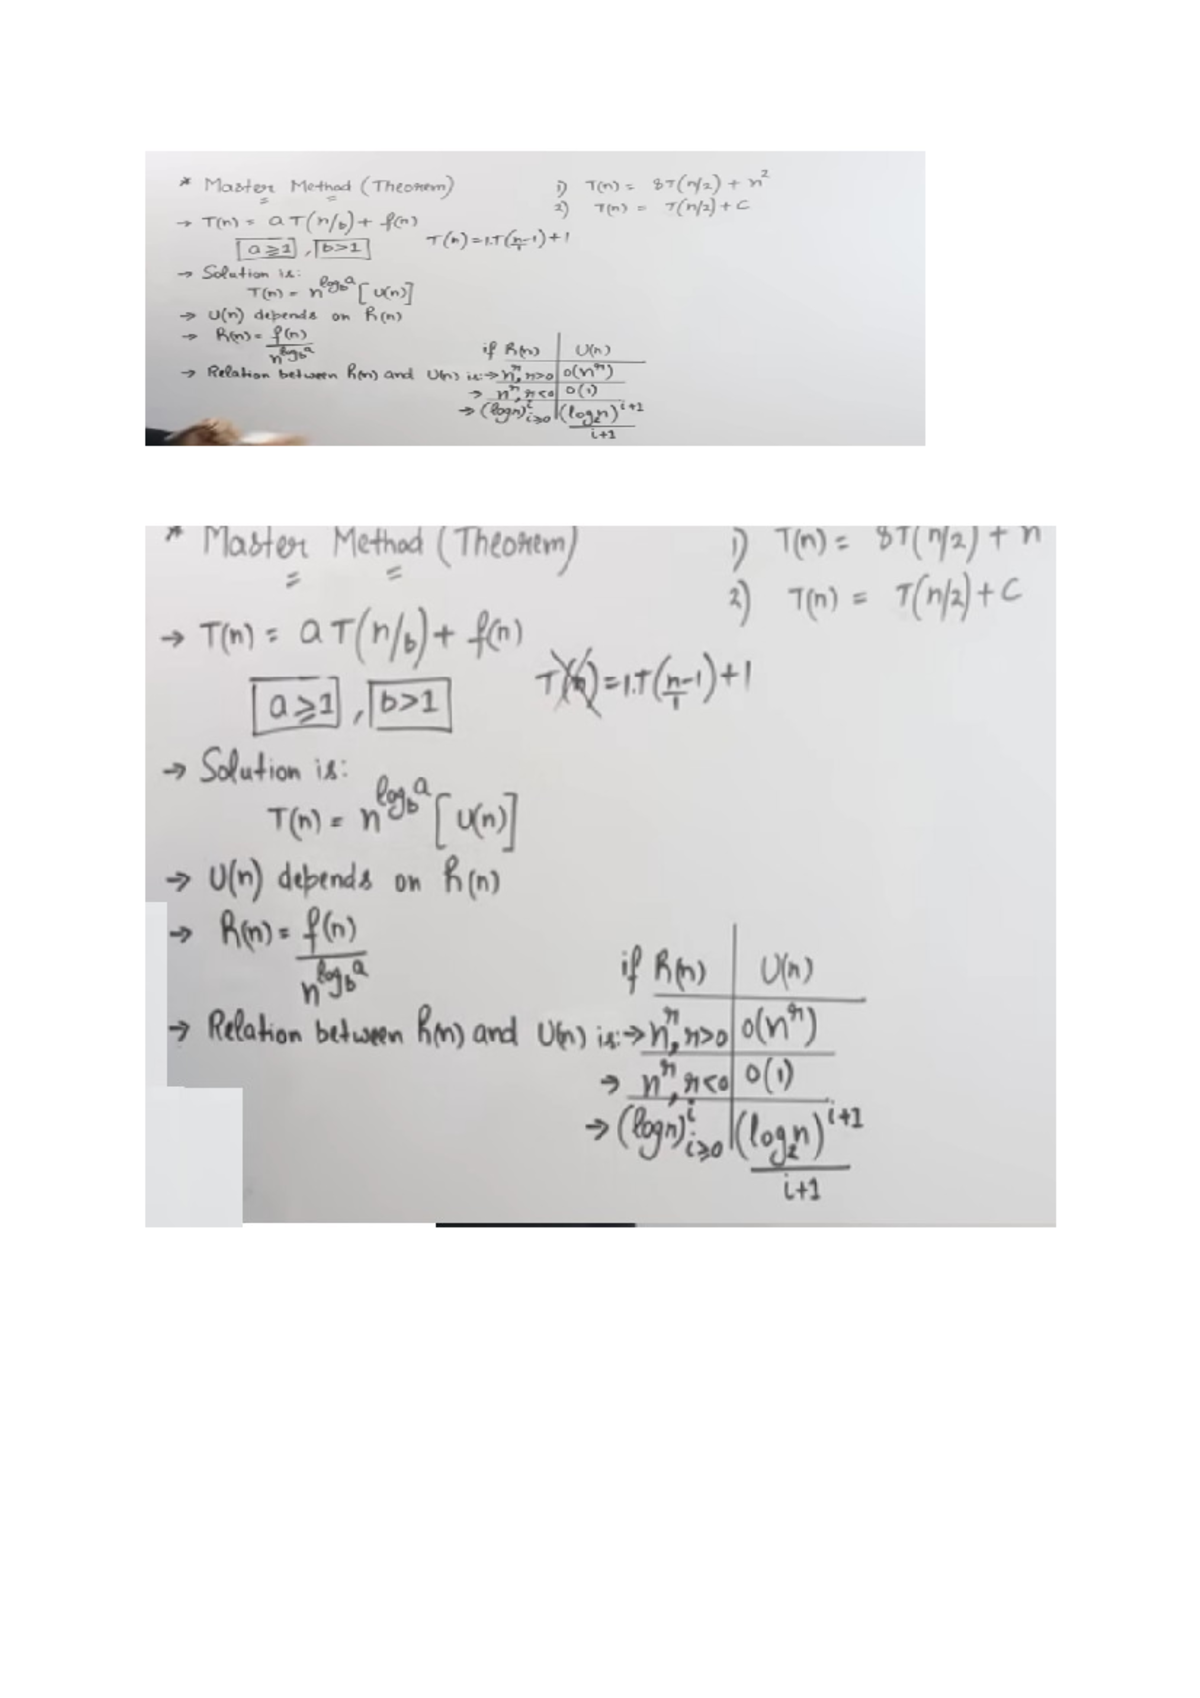 * Master Method (Theorem)
1) T(n) = 8T(n/2) + n²
2) T(n) = T(n/2) + C
→ T(n) = a T(n/b) + f(n)
a ≥ 1 , b > 1
T(n) = 1.T(n-1/1) + 1
→ Solution is:
T(n) = n^log_b a [U(n)]
→ U(n) depends on h(n)
→ h(n) = f(n) / n^log_b a
→ Relation between h(n) and U(n) is:
if h(n) | U(n)
→ n^r, r>0 | O(n^r)
→ n^r, r<0 | O(1)
→ (log n)^i i≥0 | (log₂n)^i+1 / i+1
* Master Method (Theorem)
1) T(n) = 8T(n/2) + n
2) T(n) = T(n/2) + C
→ T(n) = a T(n/b) + f(n)
a ≥ 1 , b > 1
T(n) = 1.T(n-1/1) + 1
→ Solution is:
T(n) = n^log_b a [U(n)]
→ U(n) depends on h(n)
→ h(n) = f(n) / n^log_b a
→ Relation between h(n) and U(n) is:
if h(n) | U(n)
→ n^r, r>0 | O(n^r)
→ n^r, r<0 | O(1)
→ (log n)^i i≥0 | (log₂n)^i+1 / i+1